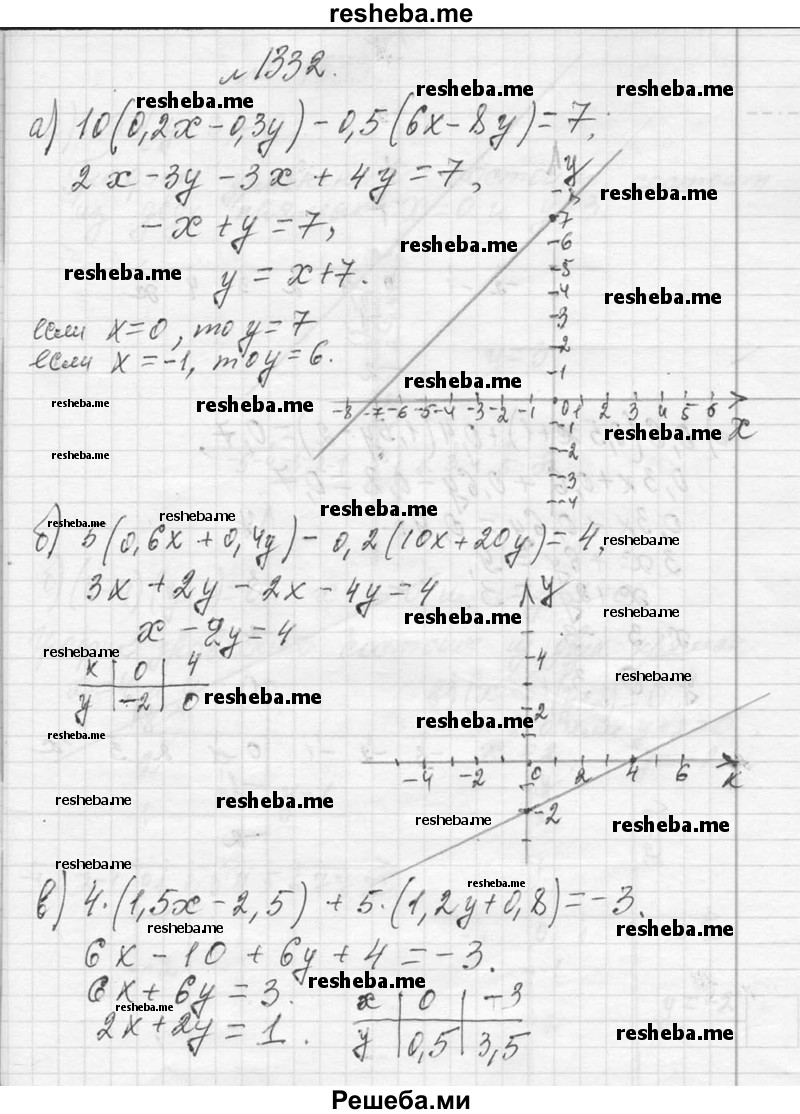 resheba.me
№ 1332.
resheba.me resheba.me resheba.me
а) 10(0,2x - 0,3y) - 0,5(6x - 8y) = 7,
2x - 3y - 3x + 4y = 7,
y
resheba.me
8
-x + y = 7,
7
resheba.me
6
resheba.me
y = x + 7.
5
4
resheba.me
3
если x = 0, то y = 7
2
если x = -1, то y = 6.
1
resheba.me
resheba.me resheba.me
-8 -7 -6 -5 -4 -3 -2 -1 0 1 2 3 4 5 6 x
-1
resheba.me
-2
resheba.me
-3
-4
resheba.me resheba.me resheba.me
б) 5(0,6x + 0,4y) - 0,2(10x + 20y) = 4,
resheba.me
3x + 2y - 2x - 4y = 4
y
resheba.me resheba.me
x - 2y = 4
resheba.me
4
x | 0 | 4
resheba.me
y | -2 | 0
resheba.me
2
resheba.me
resheba.me
-4 -2 0 2 4 6 x
resheba.me resheba.me
-2
resheba.me resheba.me
resheba.me
resheba.me
в) 4·(1,5x - 2,5) + 5·(1,2y + 0,8) = -3.
resheba.me resheba.me
6x - 10 + 6y + 4 = -3.
resheba.me
6x + 6y = 3.
x | 0 | -3
resheba.me
2x + 2y = 1.
y | 0,5 | 3,5
resheba.me
Решеба.ми